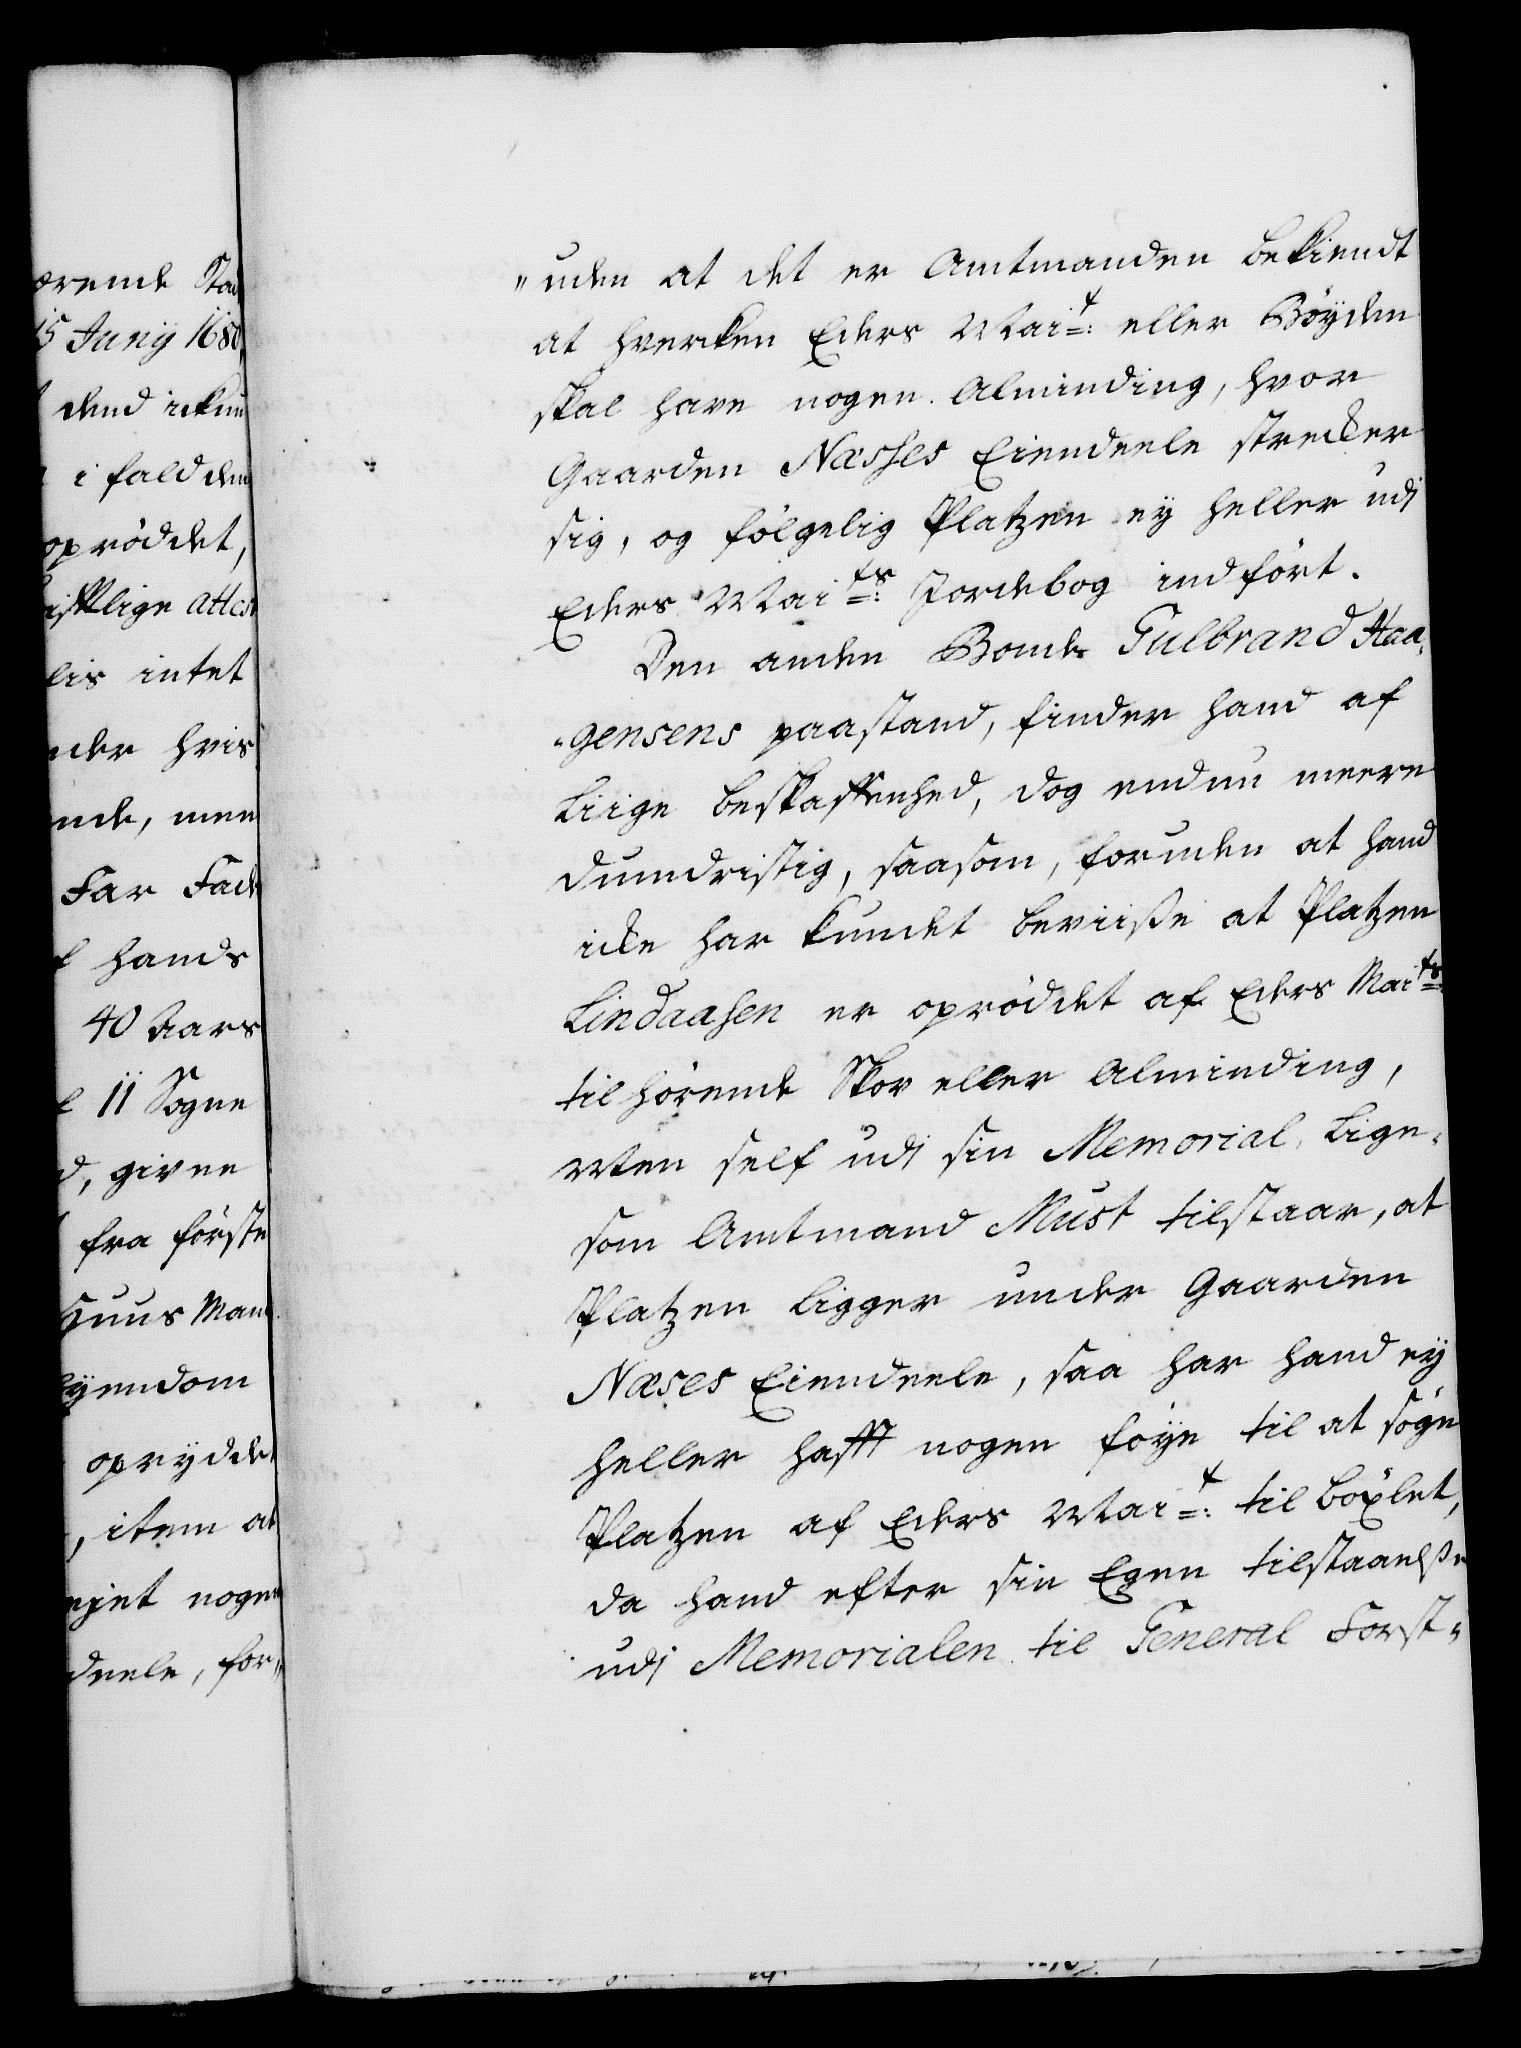 ærende Stad
15 Junij 1680,
dend ickun
i fald den
oprøddet,
lis intet
nder hvis
nde, men
Far Fade
hands
40 Aars
11 Sogne
d, givne
fra første
Huus Man
Eyendom
oprydde
, item at
ejet nogen
deele, for„
„uden at det er Amtmanden bekiendt
at hverken Eders Mai^t: eller Bøyden
skal have nogen Alminding, hvor
Gaarden Næsses Eiendeele strecker
sig, og følgelig Platzen ey heller udj
Eders Mai^ts: Jordebog indført.
Den anden Bonde Gulbrand Haa„
„gensens paastand, finder hand af
liige beskaffenhed, dog endnu meere
dumdristig, saasom, foruden at hand
icke har kundet beviiße at Platzen
Lindaasen er oprøddet af Eders Mai^ts:
tilhørende Skov eller Alminding,
Men self udj sin Memorial, lige„
som Amtmand Must tilstaar, at
Platzen ligger under Gaarden
Næses Eiendeele, saa har hand ey
heller hafft nogen føye til at søge
Platzen af Eders Mai^t: til bøxlet,
da hand efter sin Egen tilstaaelße
udj Memorialen til General Forst„